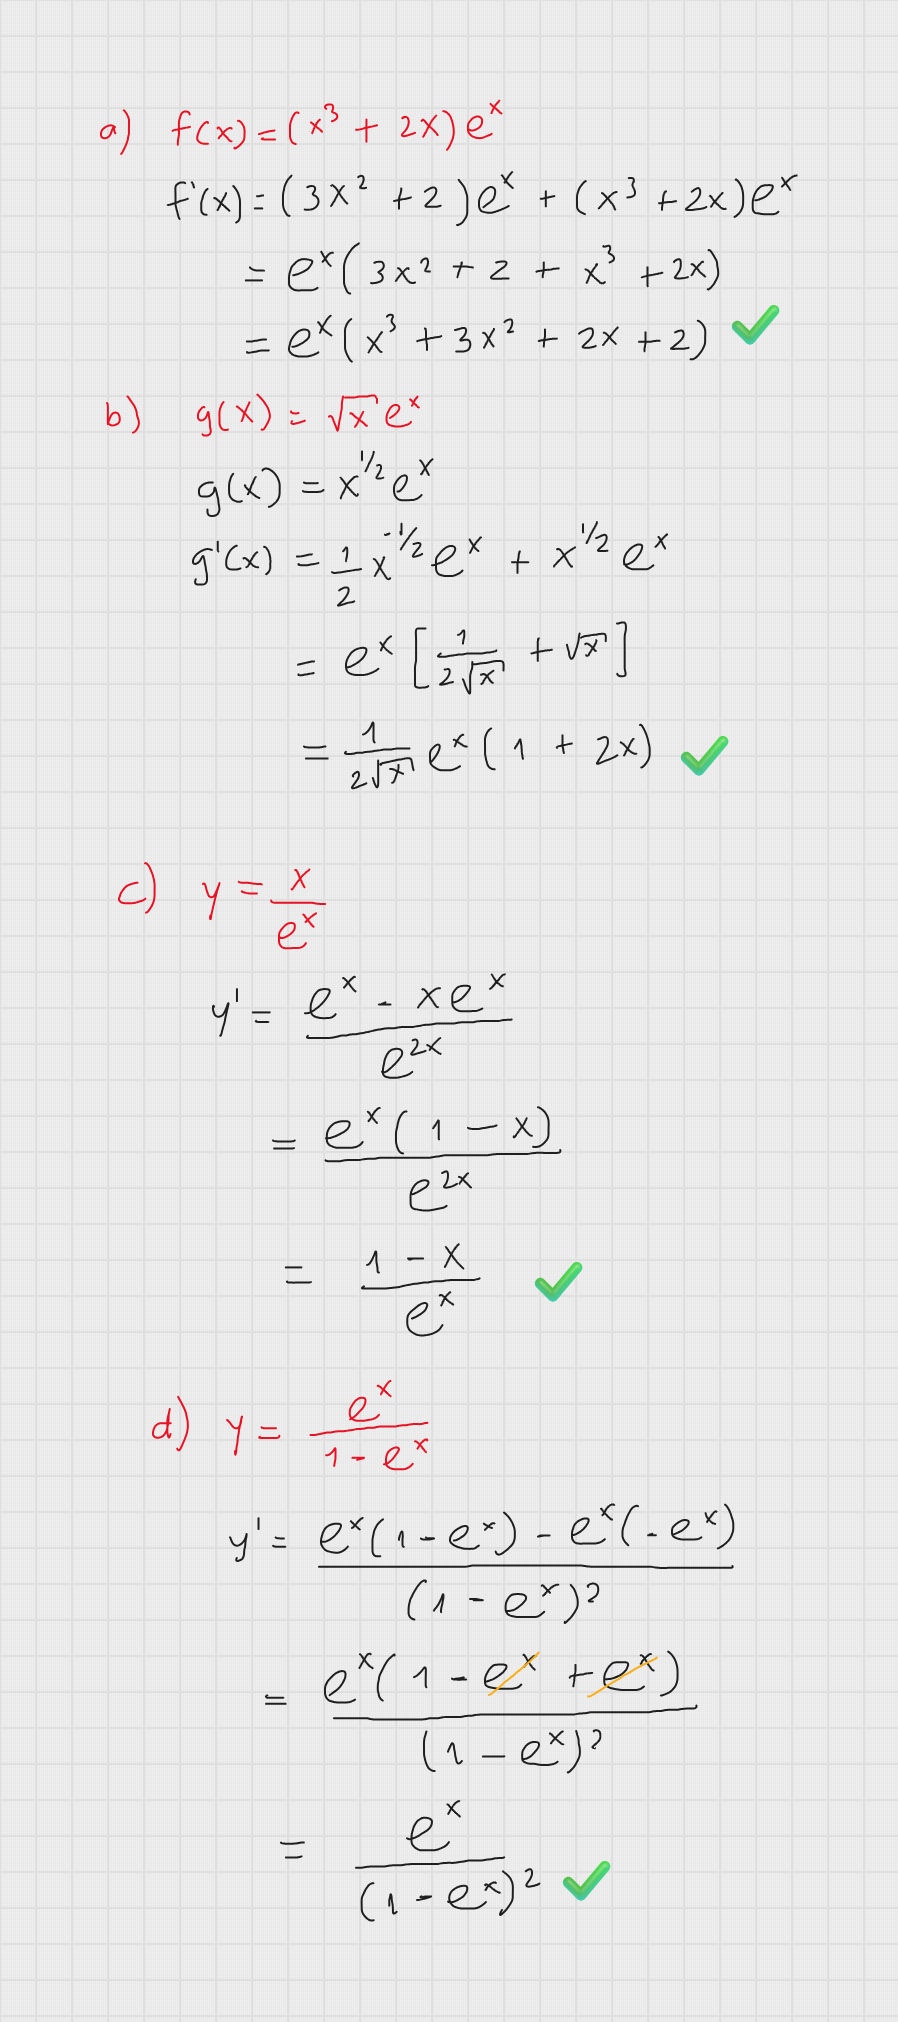 a) f(x) = (x³ + 2x) eˣ
f'(x) = (3x² + 2) eˣ + (x³ + 2x) eˣ
= eˣ (3x² + 2 + x³ + 2x)
= eˣ (x³ + 3x² + 2x + 2) ✓
b) g(x) = √x eˣ
g(x) = x^(1/2) eˣ
g'(x) = 1/2 x^(-1/2) eˣ + x^(1/2) eˣ
= eˣ [1/(2√x) + √x]
= 1/(2√x) eˣ (1 + 2x) ✓
c) y = x/eˣ
y' = (eˣ - xeˣ)/e²ˣ
= eˣ(1 - x)/e²ˣ
= (1 - x)/eˣ ✓
d) y = eˣ/(1 - eˣ)
y' = (eˣ(1 - eˣ) - eˣ(-eˣ))/(1 - eˣ)²
= eˣ(1 - eˣ + eˣ)/(1 - eˣ)²
= eˣ/(1 - eˣ)² ✓